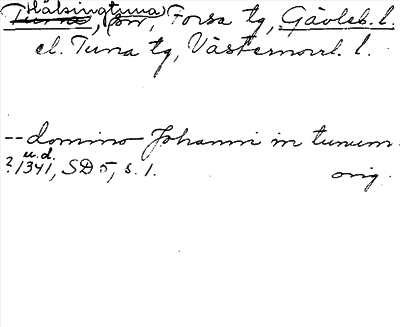 Hälsingtuna
Tuna, (sn), Forsa tg, Gävleb. l.
el. Tuna tg, Västernorrl. l.
-- domino Johanni in tunum.
u.d.
? 1341, SD 5, s. 1. orig.